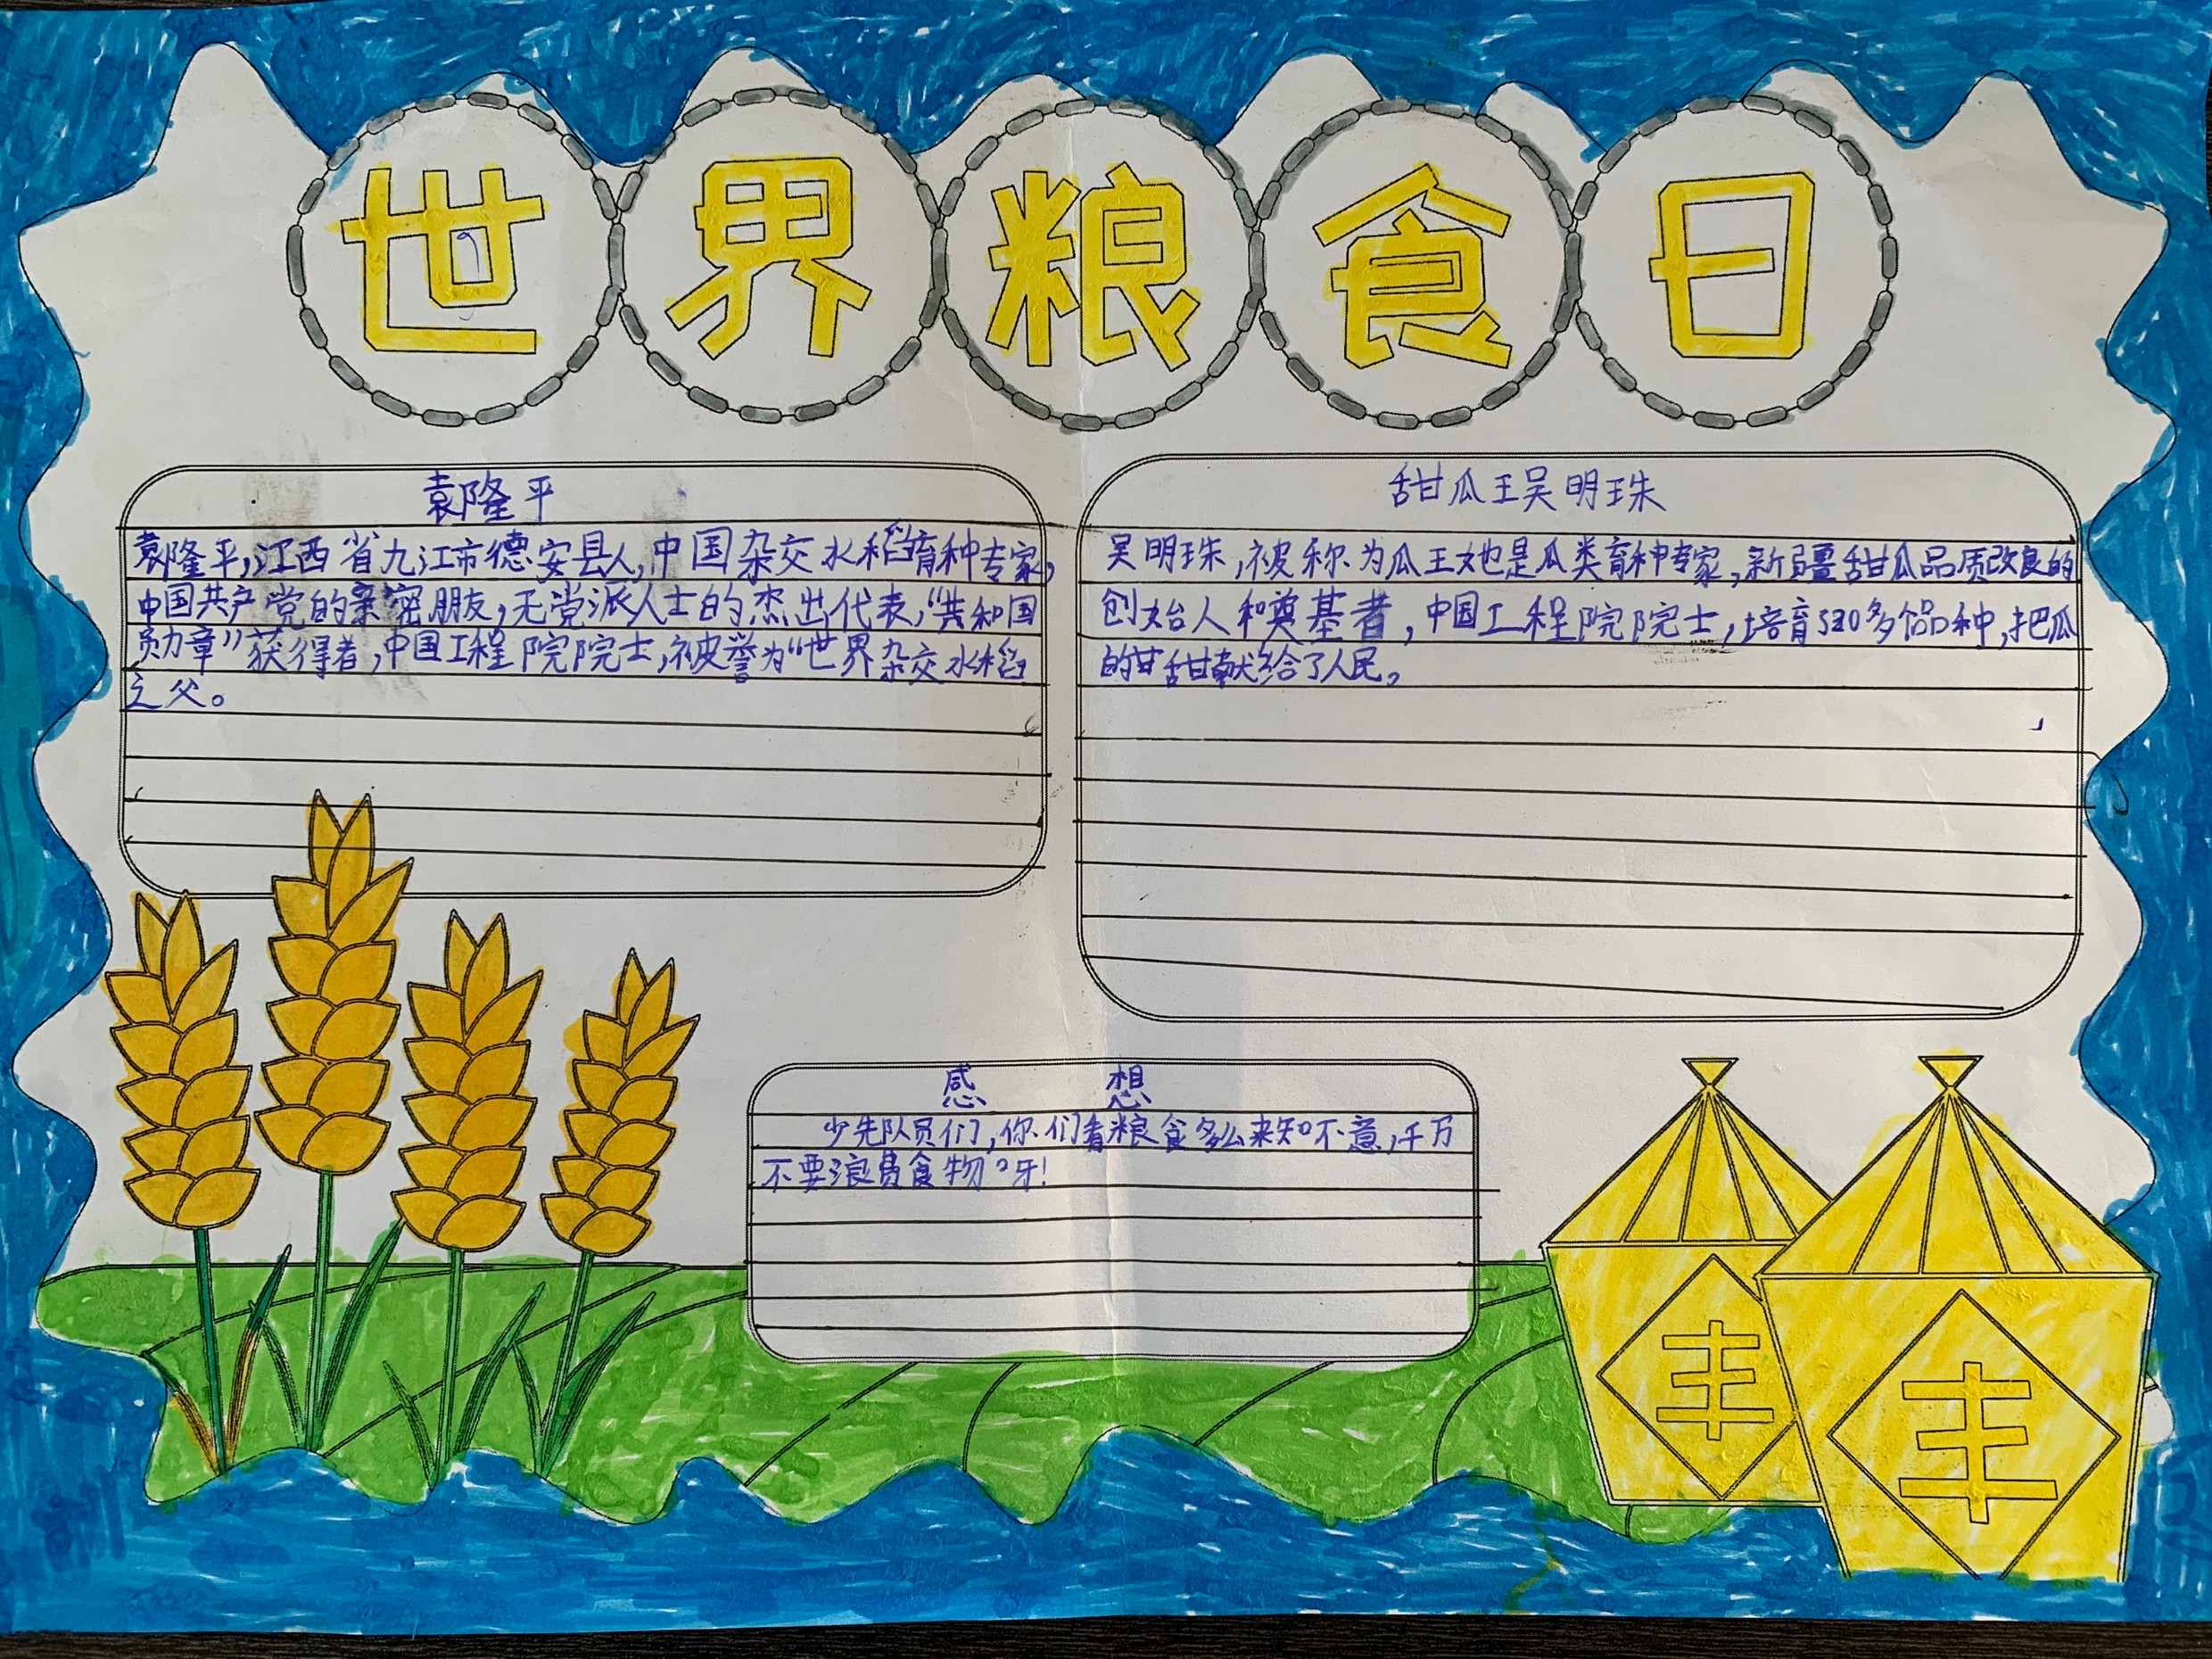 世界粮食日
袁隆平
袁隆平,江西省九江市德安县人,中国杂交水稻育种专家,
中国共产党的亲密朋友,无党派人士的杰出代表,“共和国
勋章”获得者,中国工程院院士,被誉为“世界杂交水稻
之父。
甜瓜王吴明珠
吴明珠,被称为瓜王她是瓜类育种专家,新疆甜瓜品质改良的
创始人和奠基者,中国工程院院士,培育多个品种,把瓜
的甘甜献给了人民。
感 想
少先队员们,你们看粮食多么来知不意,千万
不要浪费食物呀!
丰
丰